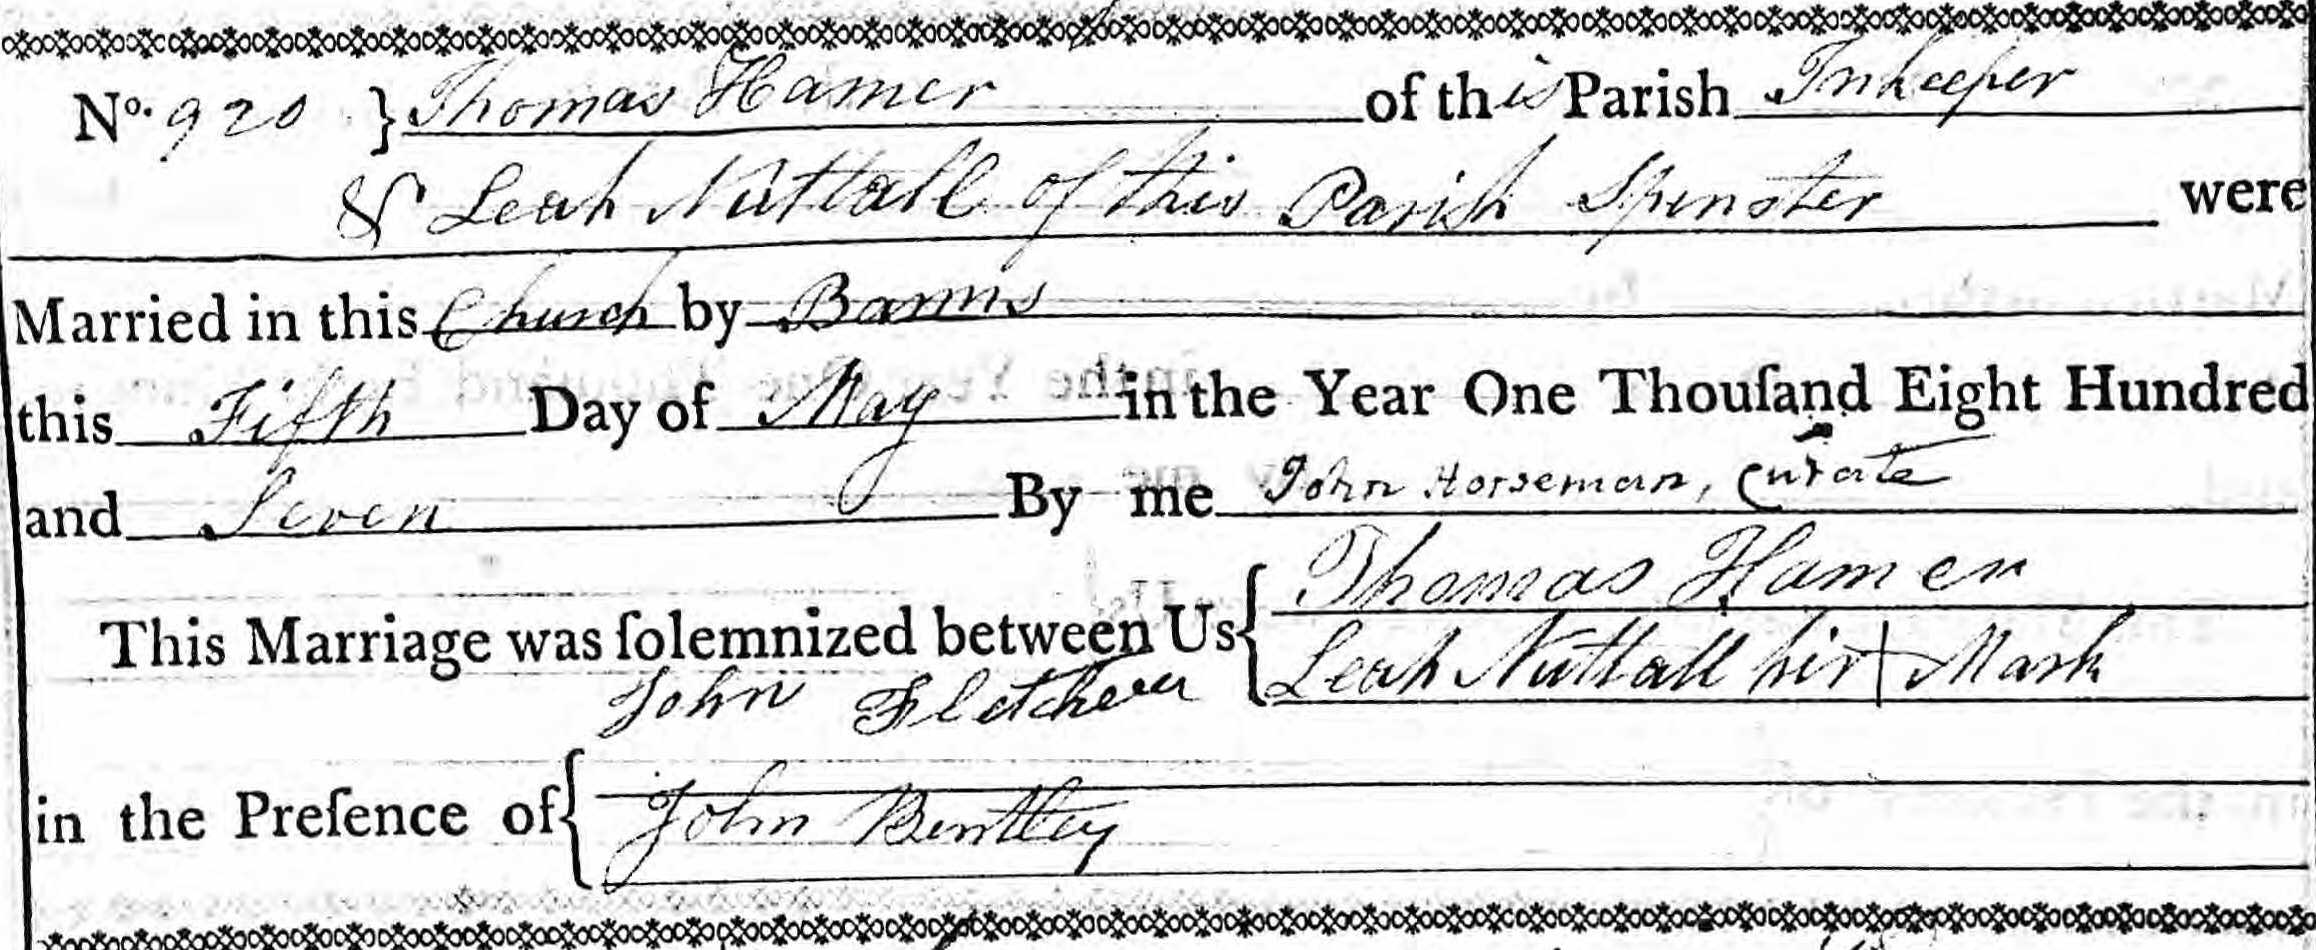 No. 920 } Thomas Hamer of this Parish Inkeeper
& Leah Nuttall of this Parish Spinster were
Married in this Church by Banns
this Fifth Day of May in the Year One Thouſand Eight Hundred
and Seven By me John Horseman, Curate
This Marriage was ſolemnized between Us { Thomas Hamer
Leah Nuttall hir | Mark
John Fletcher
in the Preſence of { John Bentley